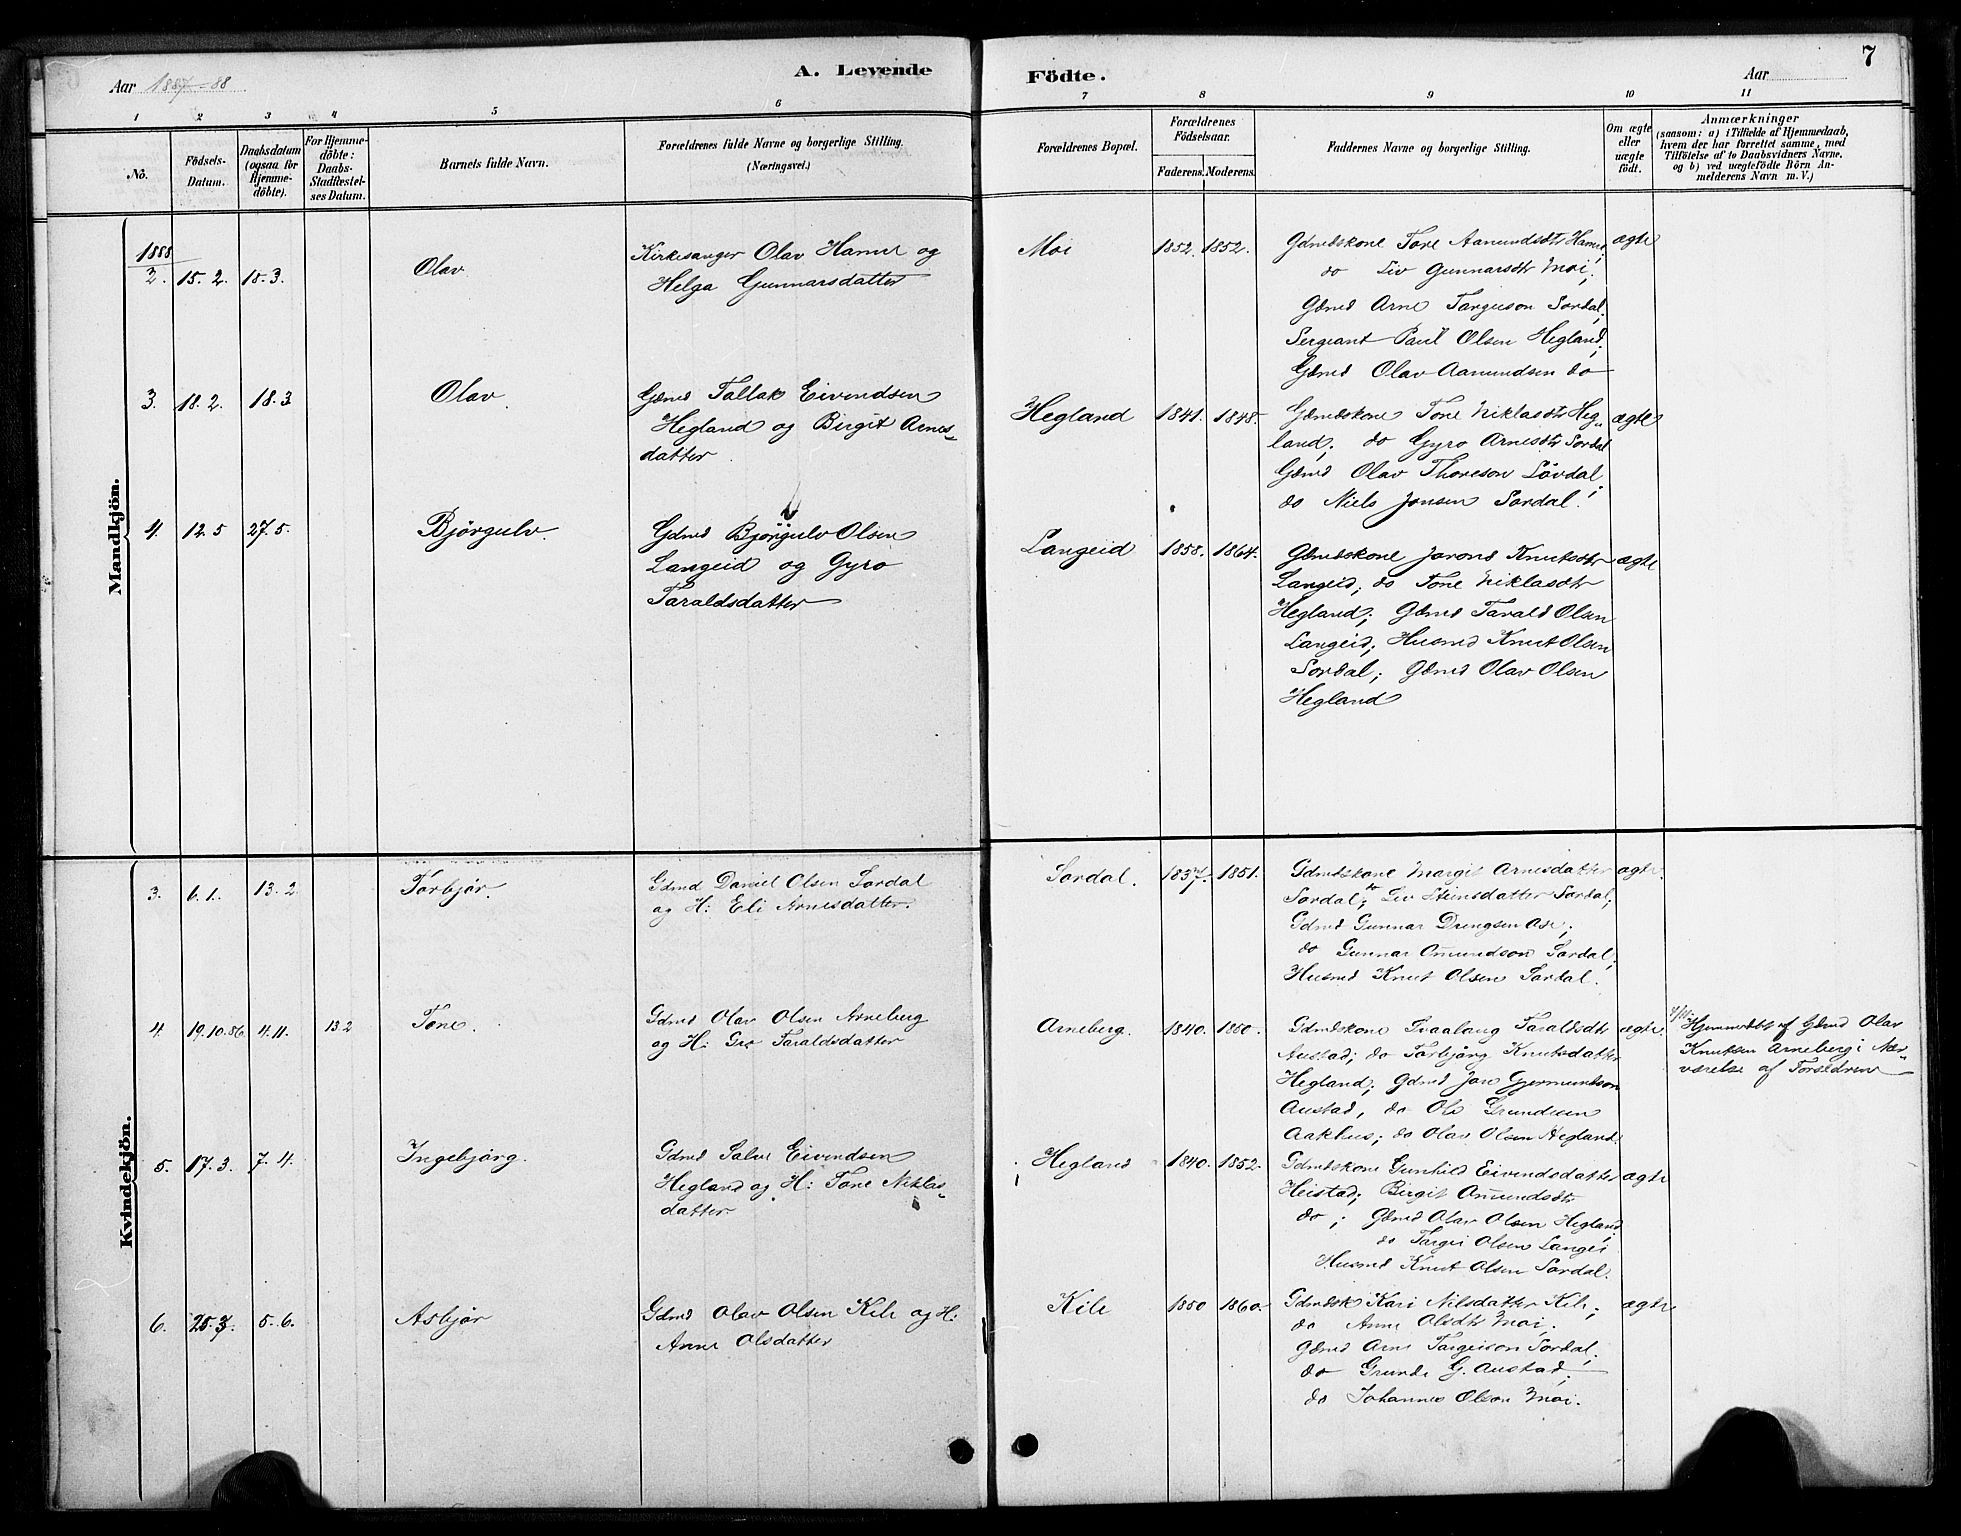 7
Aar 1887-88
A. Levende
Födte.
Aar
1 2 3 4 5 6 7 8 9 10 11
No.
Födsels-
Datum.
Daabsdatum
(ogsaa for
Hjemme-
döbte).
For Hjemme-
döbte:
Daabs-
Stadfæstel-
ses Datum.
Barnets fulde Navn.
Forældrenes fulde Navne og borgerlige Stilling.
(Næringsvei.)
Forældrenes Bopæl.
Forældrenes
Födselsaar.
Faderens. Moderens.
Faddernes Navne og borgerlige Stilling.
Om ægte
eller
uægte
födt.
Anmærkninger
(saasom: a) i Tilfælde af Hjemmedaab,
hvem der har forrettet samme, med
Tilföielse af to Daabsvidners Navne,
og b) ved uægtefödte Börn An-
melderens Navn m. V.)
Mandkjön.
1888
2. 15.2. 18.3. Olav
Kirkesanger Olav Hamre og
Helga Gunnarsdatter
Moi 1852. 1852.
Gdmdskone Tone Aamundsdtr Hamre;
do Liv Gunnarsdtr Moi;
Gdmd Arne Targuson Sordal;
Sergeant Paul Olsen Hegland;
Gdmd Olav Aamundsen do
ægte
3. 18.2. 18.3 Olav
Gdmd Tallak Eivendsen
Hegland og Birgit Arnes-
datter
Hegland 1841. 1848.
Gdmdskone Tone Niklasdtr Heg-
land; do Gyro Arnesdtr Sordal
Gdmd Olav Thoreson Lövdal;
do Niels Jonsen Sordal.
ægte
4. 12.5 27.5. Bjørgulv.
Gdmd Bjørgulv Olsen
Langeid og Gyro
Taraldsdatter
Langeid 1858. 1864.
Gdmdskone Jorond Knutsdtr
Langeid; do Tone Niklasdtr
Hegland; Gdmd Tarald Olsen
Langeid; Husmd Knut Olsen
Sordal; Gdmd Olav Olsen
Hegland
ægte
Kvindekjön.
3. 6.1. 13.2 Torbjør.
Gdmd Daniel Olsen Sordal
og H: Eli Arnesdatter.
Sordal. 1837. 1851.
Gdmdskone Margit Arnesdatter
Sordal; do Liv Steinsdatter Sordal;
Gdmd Gunnar Drengsen Ose;
do Gunnar Omundson Sordal;
Husmd Knut Olsen Sordal.
ægte.
4. 19.10.86. 4.11. 13.2 Tone.
Gdmd Olav Olsen Arneberg
og H: Gro Taraldsdatter
Arneberg. 1840. 1860.
Gdmdskone Svaalaug Taraldsdtr
Austad; do Torbjörg Knutsdatter
Hegland; Gdmd Jon Gjermundson
Austad, do Ole Grundesen
Aakhus; do Olav Olsen Hegland.
ægte.
Hjemmedöbt af Gdmd Olav
Knutsen Arneberg i Nær-
værelse af Forældrene
5. 17.3. 7.4. Ingebjörg.
Gdmd Salve Eivendsen
Hegland og H: Tone Niklas-
datter
Hegland 1840. 1852.
Gdmdskone Gunhild Eivendsdatter
Heistad; Birgit Omundsdtr
do; Gdmd Olav Olsen Hegland;
do Targei Olsen Langei
Husmd Knut Olsen Sordal.
ægte
6. 25.3. 5.6. Asbjør
Gdmd Olav Olsen Kile og H:
Anne Olsdatter
Kile 1850 1860.
Gdmdsk Kari Nilsdatter Kile;
do Anne Olsdtr Moi;
Gdmd Arne Targeison Sordal;
do Grunde G. Austad;
do Johannes Olson Moi.
ægte